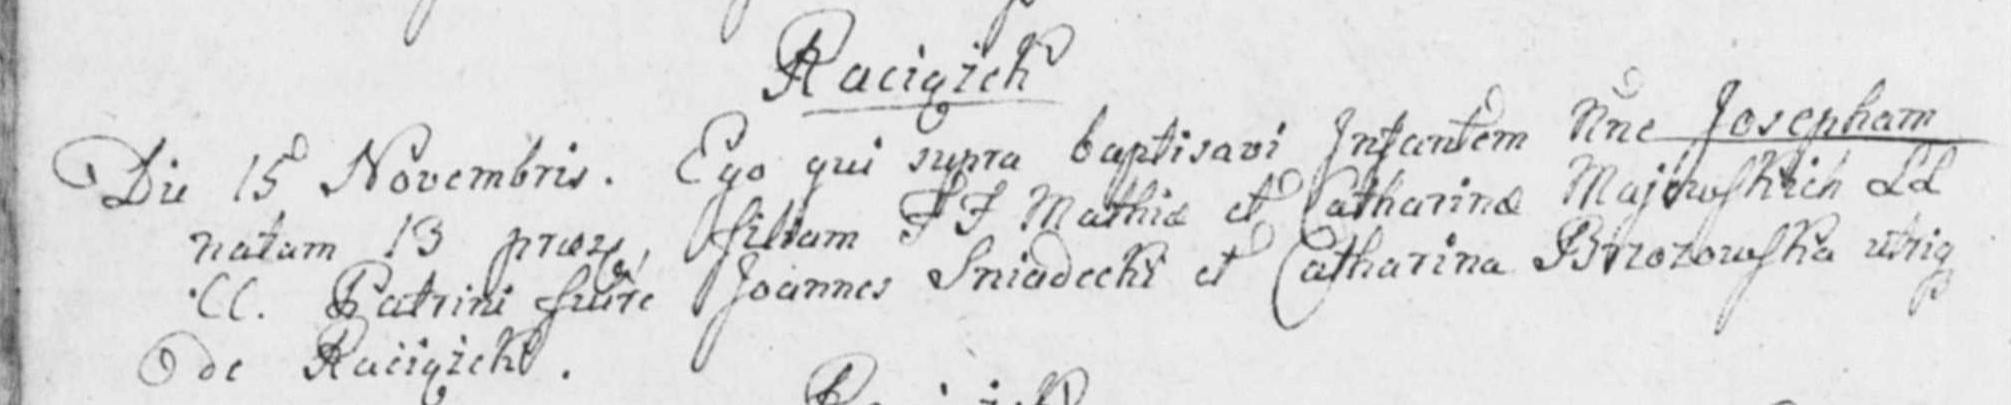 Raciążek
Die 15 Novembris. Ego qui supra baptisavi Infantem Nne Josepham
natam 13 præs, filiam FF Mathiæ et Catharinæ Majewskich LL
CC. Patrini fuere Joannes Sniadecki et Catharina Brzozowska utriq
de Raciążek.